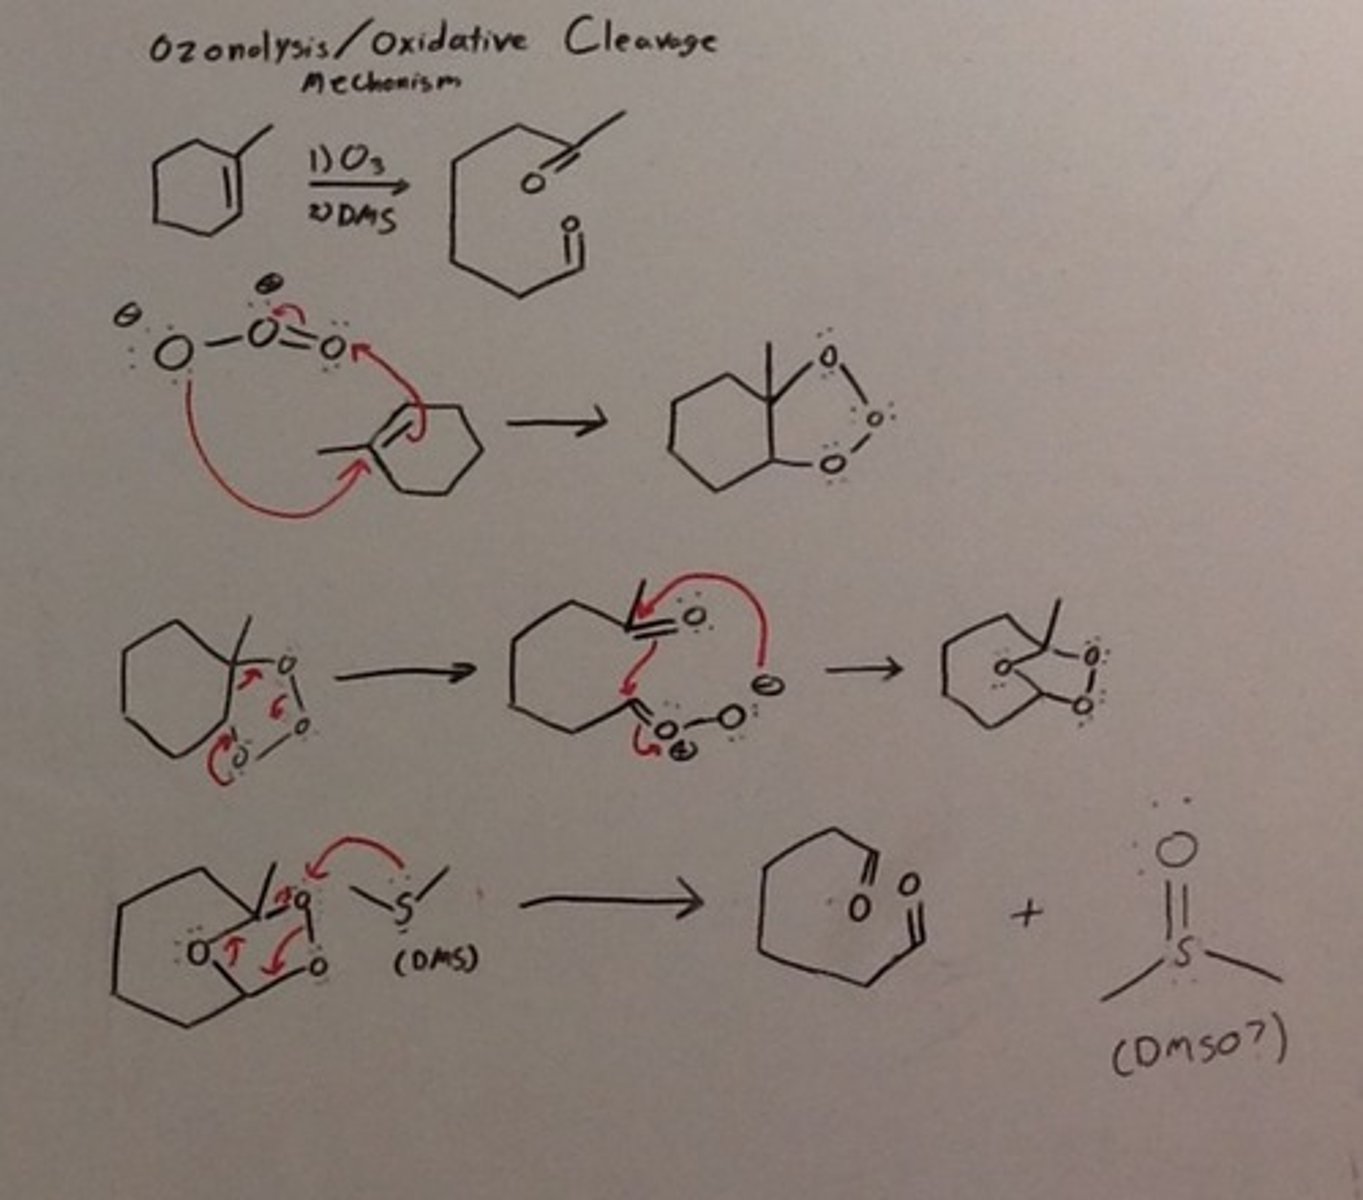 Ozonolysis/Oxidative Cleavage
Mechanism
1) O3
2) DMS
O
O
⊖ ⊕
O O O
O
O
O
O
O
O
O
O O ⊖
⊕
O O
O
O
O
O
O
S
(DMS)
O
O
+
O
S
(DMSO?)